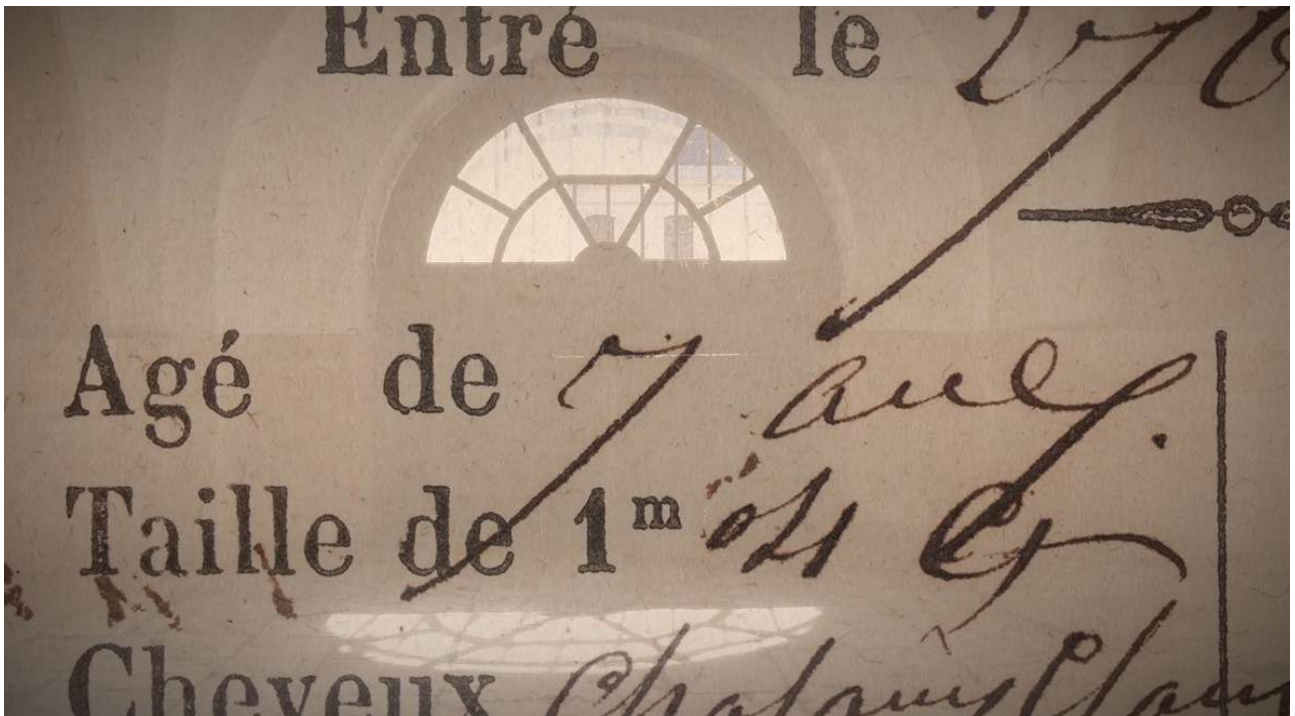 Entré le 27
Agé de 7 ans.
Taille de 1m 04 c
Cheveux Chatains Clairs